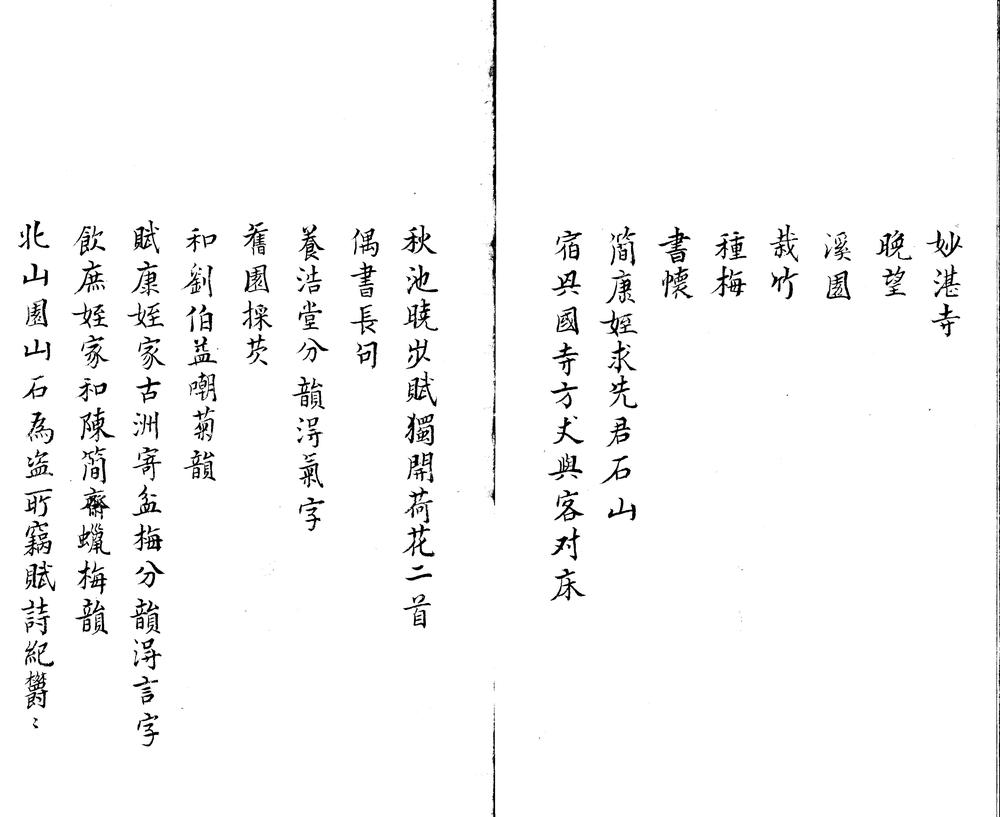 妙湛寺
晚望
溪園
栽竹
種梅
書懷
簡康姪求先君石山
宿興國寺方丈與客対床
秋池曉步賦獨開荷花二首
偶書長句
養浩堂分韻淂氣字
舊園採芡
和劉伯益嘲菊韻
賦康姪家古洲寄盆梅分韻淂言字
飲庶姪家和陳簡齋蠟梅韻
北山園山石為盗所竊賦詩紀欝〻